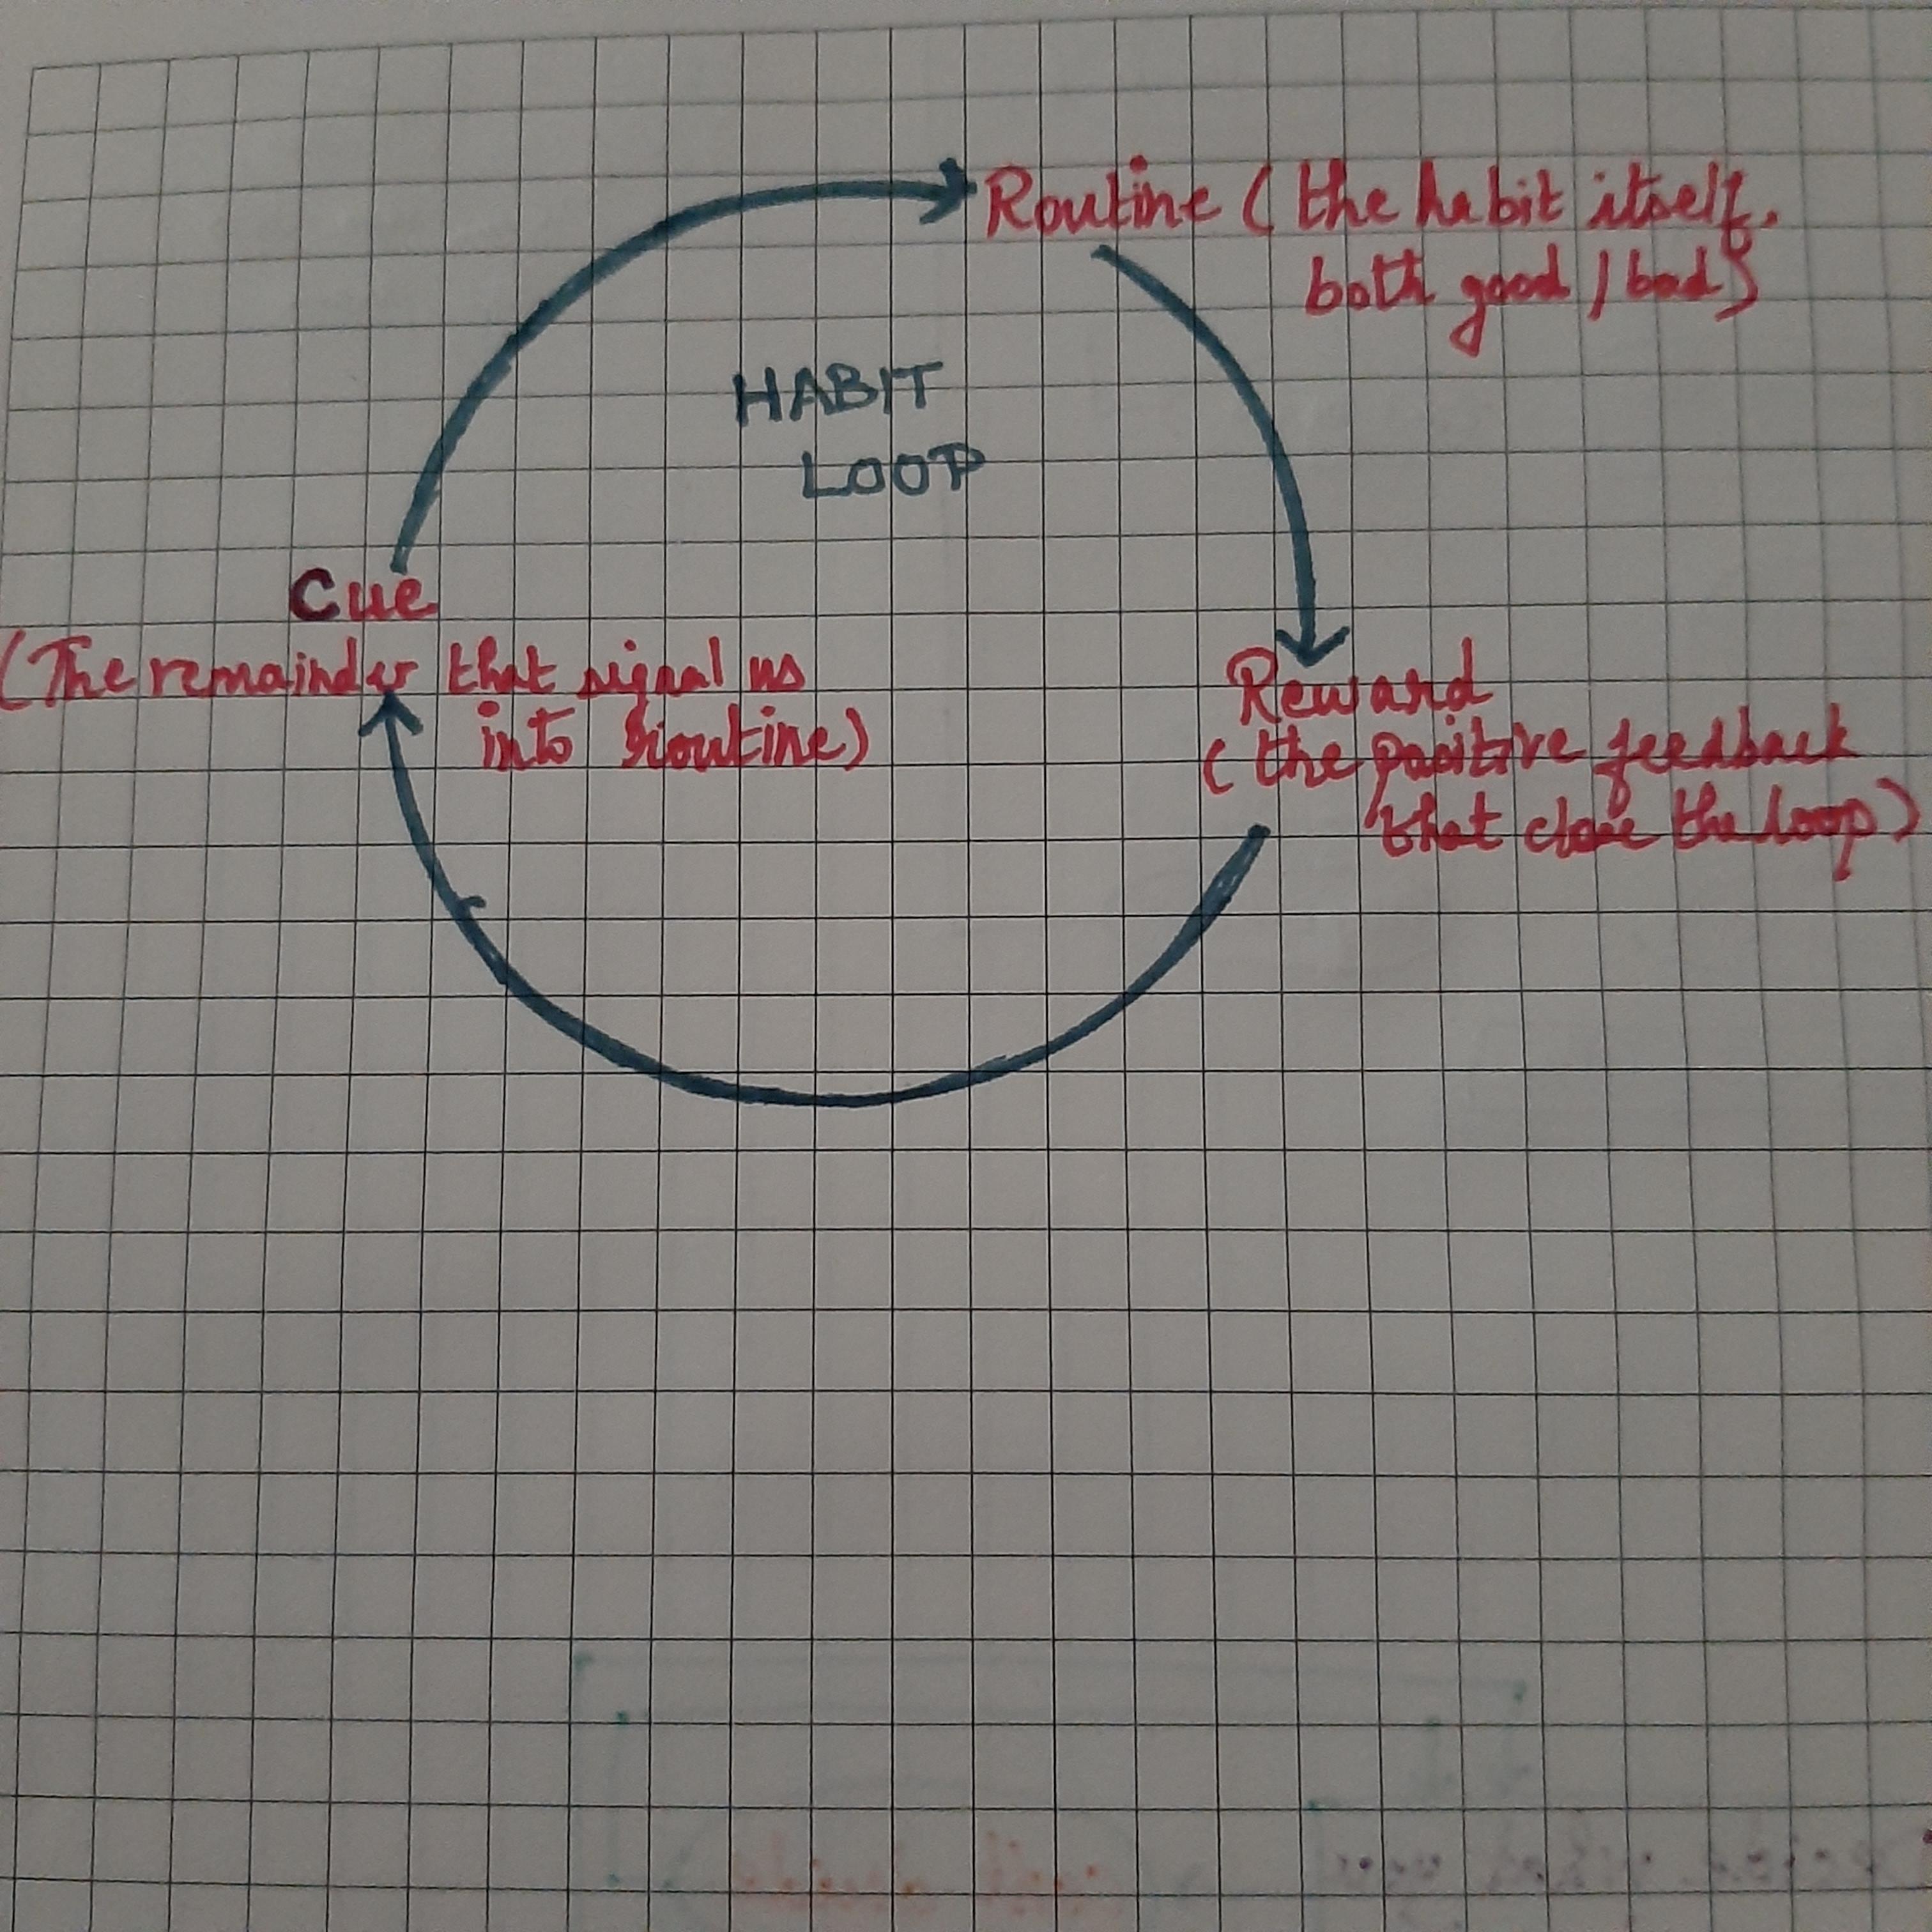 Routine ( the habit itself,
both good / bad}
HABIT
LOOP
Cue
(The remainder that signal us
into routine)
Reward
( the positive feedback
that close the loop)